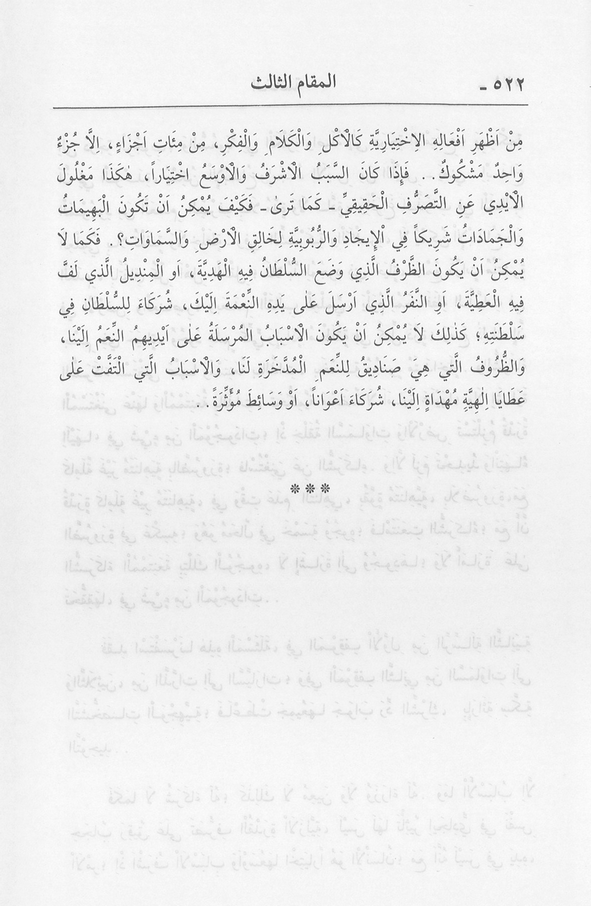 ٥٢٢ ـ المقام الثالث
مِنْ اَظْهَرِ اَفْعَالِهِ الاِخْتِيَارِيَّةِ كَالْاَكْلِ وَالْكَلَامِ وَالْفِكْرِ، مِنْ مِئَاتِ اَجْزَاءٍ، اِلاَّ جُزْءٌ
وَاحِدٌ مَشْكُوكٌ.. فَإِذَا كَانَ السَّبَبُ الْاَشْرَفُ وَالْاَوْسَعُ اخْتِيَاراً، هٰكَذَا مَغْلُولَ
الْاَيْدِي عَنِ التَّصَرُّفِ الْحَقِيقِيِّ ـ كَمَا تَرىٰ ـ فَكَيْفَ يُمْكِنُ اَنْ تَكُونَ الْبَهِيمَاتُ
وَالْجَمَادَاتُ شَرِيكاً فِي اْلإِيجَادِ وَالرُّبُوبِيَّةِ لِخَالِقِ الْاَرْضِ وَالسَّمَاوَاتِ؟. فَكَمَا لَا
يُمْكِنُ اَنْ يَكُونَ الظَّرْفُ الَّذي وَضَعَ السُّلْطَانُ فِيهِ الْهَدِيَّةَ، اَوِ الْمِنْدِيلُ الَّذي لَفَّ
فِيهِ الْعَطِيَّةَ، اَوِ النَّفَرُ الَّذي اَرْسَلَ عَلىٰ يَدِهِ النِّعْمَةَ اِلَيْكَ، شُرَكَاءَ لِلسُّلْطَانِ فِي
سَلْطَنَتِهِ؛ كَذٰلِكَ لَا يُمْكِنُ اَنْ يَكُونَ الْاَسْبَابُ الْمُرْسَلَةُ عَلىٰ اَيْدِيهِمُ النِّعَمُ اِلَيْنَا،
وَالظُّرُوفُ الَّتي هِيَ صَنَادِيقُ لِلنِّعَمِ الْمُدَّخَرَةِ لَنَا، وَالْاَسْبَابُ الَّتي الْتَفَّتْ عَلىٰ
عَطَايَا اِلٰهِيَّةٍ مُهْدَاةٍ اِلَيْنَا، شُرَكَاءَ اَعْوَاناً، اَوْ وَسَائِطَ مُؤَثِّرَةً..
***